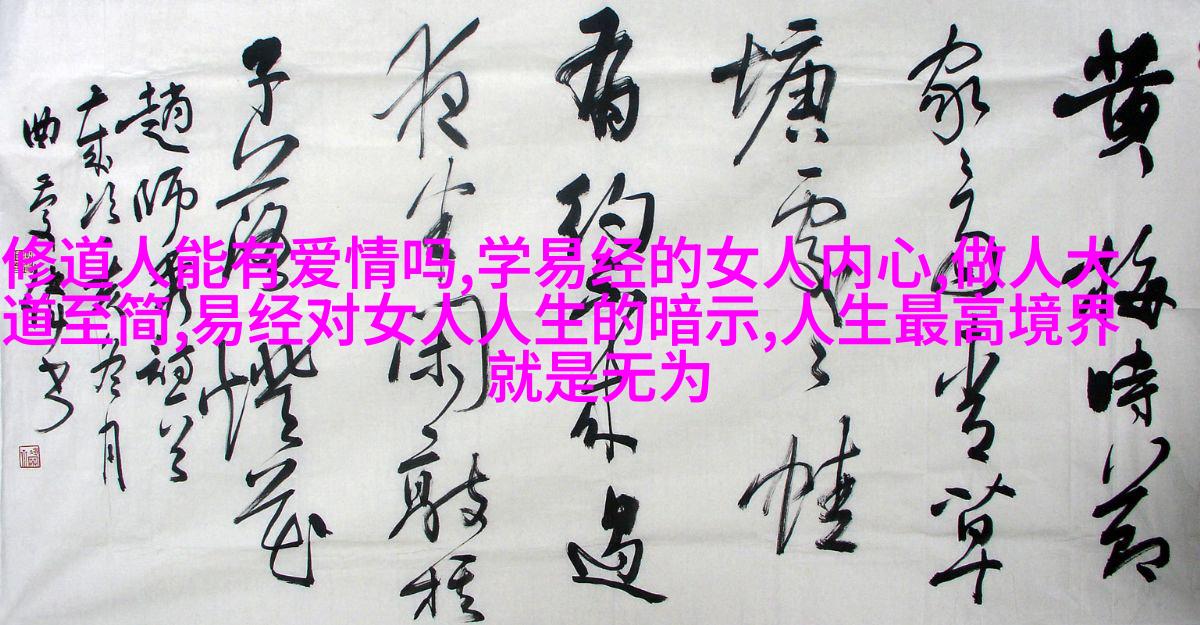 修道人能有爱情吗,学易经的女人内心,做人大
道至简,易经对女人人生的暗示,人生最高境界
就是无为
黄梅時節
家〻雨青草
塘處〻蛙
有约不来過
夜半闲敲棋
子落燈花
趙師秀
冬月